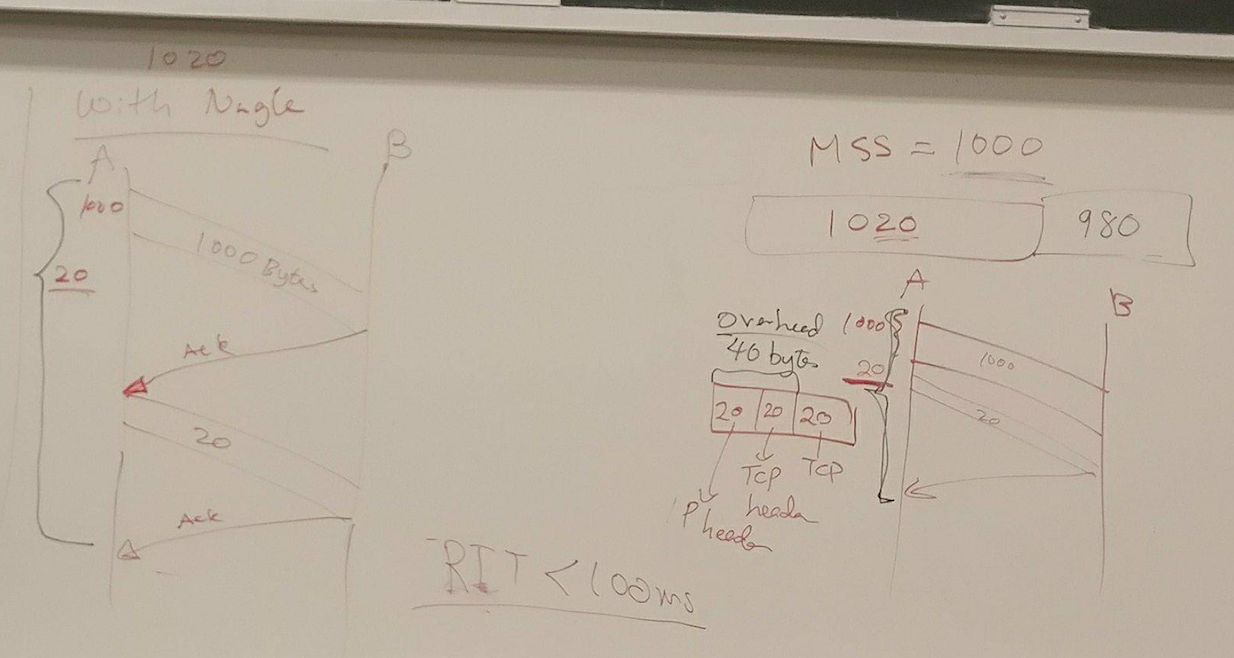 1020
With Nagle
A
B
1000
1000 Bytes
20
Ack
20
Ack
RTT < 100ms
MSS = 1000
1020
980
A
B
Overhead
40 bytes
1000
20
1000
20
20 20 20
TCP
header
TCP
IP
header